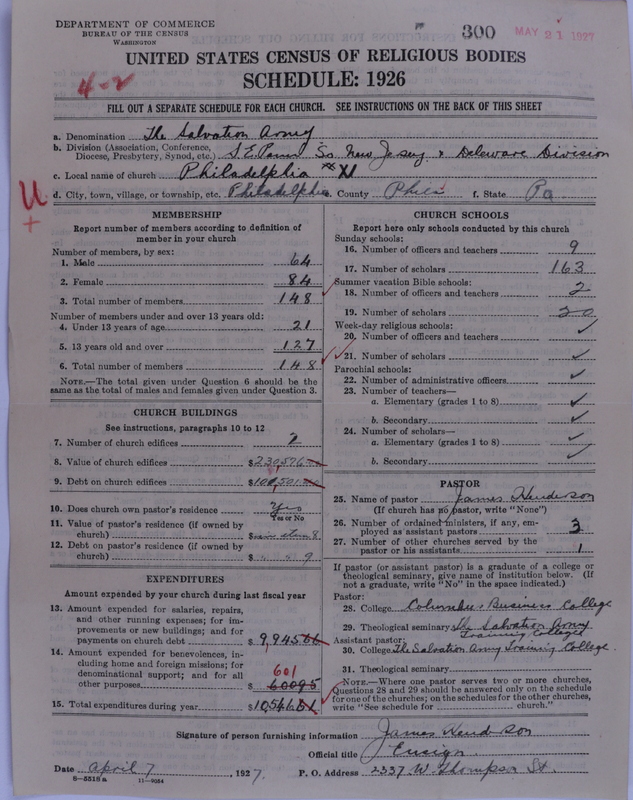 DEPARTMENT OF COMMERCE
BUREAU OF THE CENSUS
WASHINGTON
300
MAY 21 1927
UNITED STATES CENSUS OF RELIGIOUS BODIES
SCHEDULE: 1926
4-2
FILL OUT A SEPARATE SCHEDULE FOR EACH CHURCH. SEE INSTRUCTIONS ON THE BACK OF THIS SHEET
a. Denomination The Salvation Army
b. Division (Association, Conference, Diocese, Presbytery, Synod, etc.) S E Penna So. New Jersey & Deleware Division
c. Local name of church Philadelphia XI
U
+
d. City, town, village, or township, etc. Philadelphia e. County Phila f. State Pa
MEMBERSHIP
Report number of members according to definition of member in your church
Number of members, by sex:
1. Male 64
2. Female 84
3. Total number of members 148
Number of members under and over 13 years old:
4. Under 13 years of age 21
5. 13 years old and over 127
6. Total number of members 148
NOTE.—The total given under Question 6 should be the same as the total of males and females given under Question 3.
CHURCH BUILDINGS
See instructions, paragraphs 10 to 12
7. Number of church edifices
8. Value of church edifices $230,576
9. Debt on church edifices $100,501
10. Does church own pastor's residence Yes
Yes or No
11. Value of pastor's residence (if owned by church) $ 8
12. Debt on pastor's residence (if owned by church) 9
EXPENDITURES
Amount expended by your church during last fiscal year
13. Amount expended for salaries, repairs, and other running expenses; for improvements or new buildings; and for payments on church debt $ 9,945
14. Amount expended for benevolences, including home and foreign missions; for denominational support; and for all other purposes $ 60095
601
15. Total expenditures during year $10,546
CHURCH SCHOOLS
Report here only schools conducted by this church
Sunday schools:
16. Number of officers and teachers 9
17. Number of scholars 163
Summer vacation Bible schools:
18. Number of officers and teachers 2
19. Number of scholars 20
Week-day religious schools:
20. Number of officers and teachers
21. Number of scholars
Parochial schools:
22. Number of administrative officers
23. Number of teachers—
a. Elementary (grades 1 to 8)
b. Secondary
24. Number of scholars—
a. Elementary (grades 1 to 8)
b. Secondary
PASTOR
25. Name of pastor James Henderson
(If church has no pastor, write "None")
26. Number of ordained ministers, if any, employed as assistant pastors 3
27. Number of other churches served by the pastor or his assistants 1
If pastor (or assistant pastor) is a graduate of a college or theological seminary, give name of institution below. (If not a graduate, write "No" in the space indicated.)
Pastor:
28. College Columbus Business College
29. Theological seminary The Salvation Army Training College
Assistant pastor:
30. College The Salvation Army Training College.
31. Theological seminary
NOTE.—Where one pastor serves two or more churches, Questions 28 and 29 should be answered only on the schedule for one of the churches; on the schedules for the other churches, write "See schedule for church."
Signature of person furnishing information James Henderson
Official title Ensign
Date April 7, 1927. P. O. Address 2337 W. Thompson St.
8-5518a 11-9054